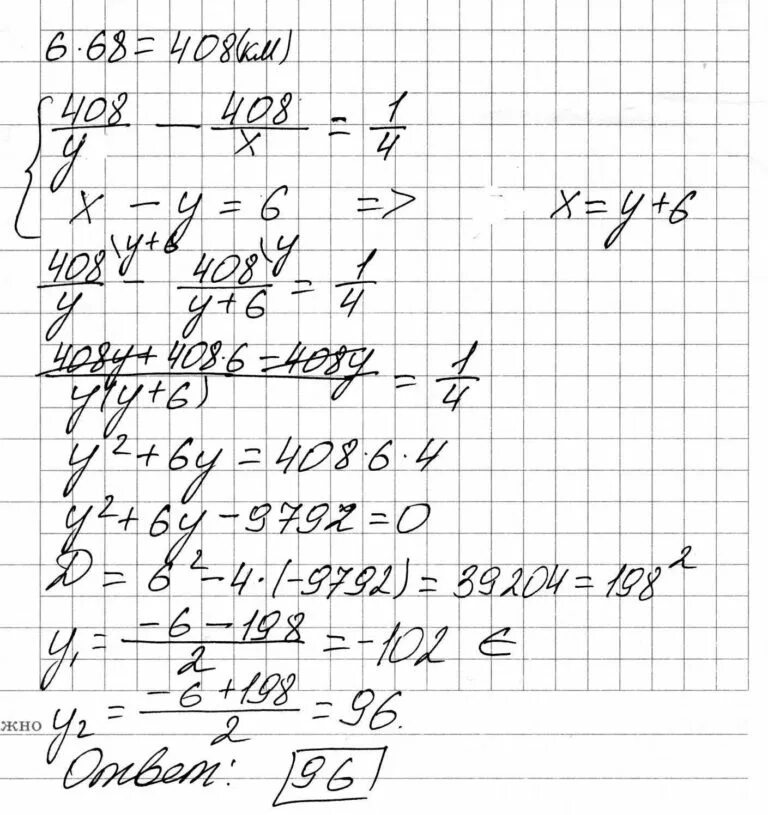 6·68 = 408(км)
{ 408/y − 408/x = 1/4
x − y = 6 => x = y+6
408\y+6/y − 408\y/y+6 = 1/4
408y + 408·6 − 408y / y(y+6) = 1/4
y² + 6y = 408·6·4
y² + 6y − 9792 = 0
D = 6² − 4·(−9792) = 39204 = 198²
y₁ = −6 − 198 / 2 = −102 ∈
y₂ = −6 + 198 / 2 = 96.
жно
Ответ: 96